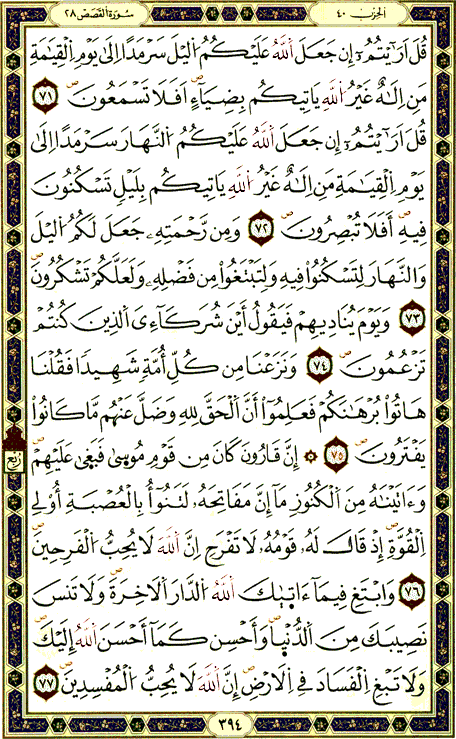 الحِزْبُ ٤٠
سُورَةُ القَصَصِ ٢٨
قُلَ اَرَٰيْتُمُۥٓ إِن جَعَلَ اَللَّهُ عَلَيْكُمُ اُ۬ليْلَ سَرْمَداً اِلَىٰ يَوْمِ اِ۬لْقِيَٰمَةِ
مَنِ اِلَٰهٌ غَيْرُ اُ۬للَّهِ يَاتِيكُم بِضِيَآءٍ اَفَلَا تَسْمَعُونَۖ ٧١
قُلَ اَرَٰيْتُمُۥٓ إِن جَعَلَ اَ۬للَّهُ عَلَيْكُمُ اُ۬لنَّهَارَ سَرْمَداً اِلَىٰ
يَوْمِ اِ۬لْقِيَٰمَةِ مَنِ اِلَٰهٌ غَيْرُ اُ۬للَّهِ يَاتِيكُم بِلَيْلٖ تَسْكُنُونَ
فِيهِۖ أَفَلَا تُبْصِرُونَۖ ٧٢ وَمِن رَّحْمَتِهِۦ جَعَلَ لَكُمُ اُ۬ليْلَ
وَالنَّهَارَ لِتَسْكُنُواْ فِيهِ وَلِتَبْتَغُواْ مِن فَضْلِهِۦ وَلَعَلَّكُمْ تَشْكُرُونَۖ
٧٣ وَيَوْمَ يُنَادِيهِمْ فَيَقُولُ أَيْنَ شُرَكَآءِيَ اَ۬لذِينَ كُنتُمْ
تَزْعُمُونَۖ ٧٤ وَنَزَعْنَا مِن كُلِّ أُمَّةٖ شَهِيداٗ فَقُلْنَا
هَاتُواْ بُرْهَٰنَكُمْ فَعَلِمُوٓاْ أَنَّ اَ۬لْحَقَّ لِلهِ وَضَلَّ عَنْهُم مَّا كَانُواْ
يَفْتَرُونَۖ ٧٥ ۞ إِنَّ قَٰرُونَ كَانَ مِن قَوْمِ مُوسَىٰ فَبَغَىٰ عَلَيْهِمْۖ
وَءَاتَيْنَٰهُ مِنَ اَ۬لْكُنُوزِ مَآ إِنَّ مَفَاتِحَهُۥ لَتَنُوٓأُ بِالْعُصْبَةِ أُوْلِے
اِ۬لْقُوَّةِۖ إِذْ قَالَ لَهُۥ قَوْمُهُۥ لَا تَفْرَحِ اِنَّ اَ۬للَّهَ لَا يُحِبُّ اُ۬لْفَرِحِينَۖ
٧٦ وَابْتَغِ فِيمَآ ءَاتَيٰكَ اَ۬للَّهُ اُ۬لدَّارَ اَ۬لَاخِرَةَۖ وَلَا تَنسَ
نَصِيبَكَ مِنَ اَ۬لدُّنْيَاۖ وَأَحْسِن كَمَآ أَحْسَنَ اَ۬للَّهُ إِلَيْكَۖ
وَلَا تَبْغِ اِ۬لْفَسَادَ فِے اِ۬لَارْضِۖ إِنَّ اَ۬للَّهَ لَا يُحِبُّ اُ۬لْمُفْسِدِينَۖ ٧٧
ربع
٣٩٤